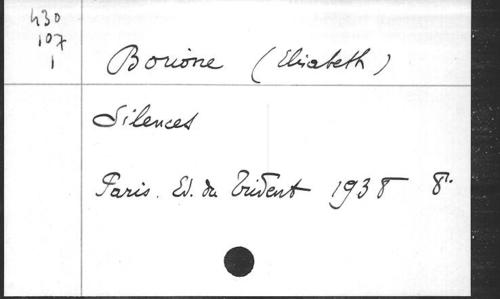 430
107
1
Borione (Elisabeth)
Silences
Paris. Ed. du Trident 1938 8°.